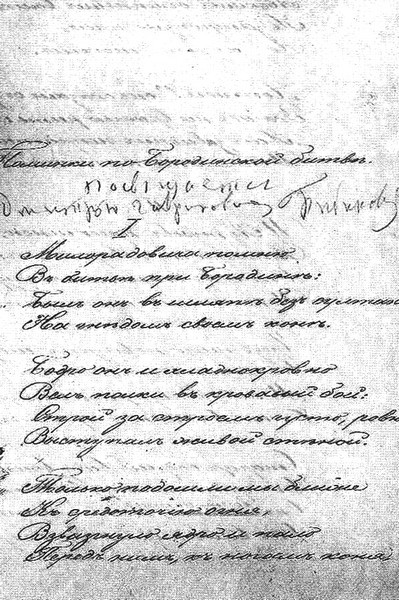 Поминки по Бородинской битвѣ.
посвящается
Дмитрію Гавриловичу Бибикову
I
Милорадовича помню
Въ битвѣ при Бородинѣ:
Былъ онъ въ шляпѣ безъ султан
На гнѣдомъ своемъ конѣ.
Бодро онъ и хладнокровно
Велъ полки въ кровавый бой:
Строй за строемъ густо, ровн
Выступалъ живой стѣной.
Только подошли мы ближе
Къ средоточію огня,
Взвизгнуло ядро и пало
Передъ нимъ, къ ногамъ коня,